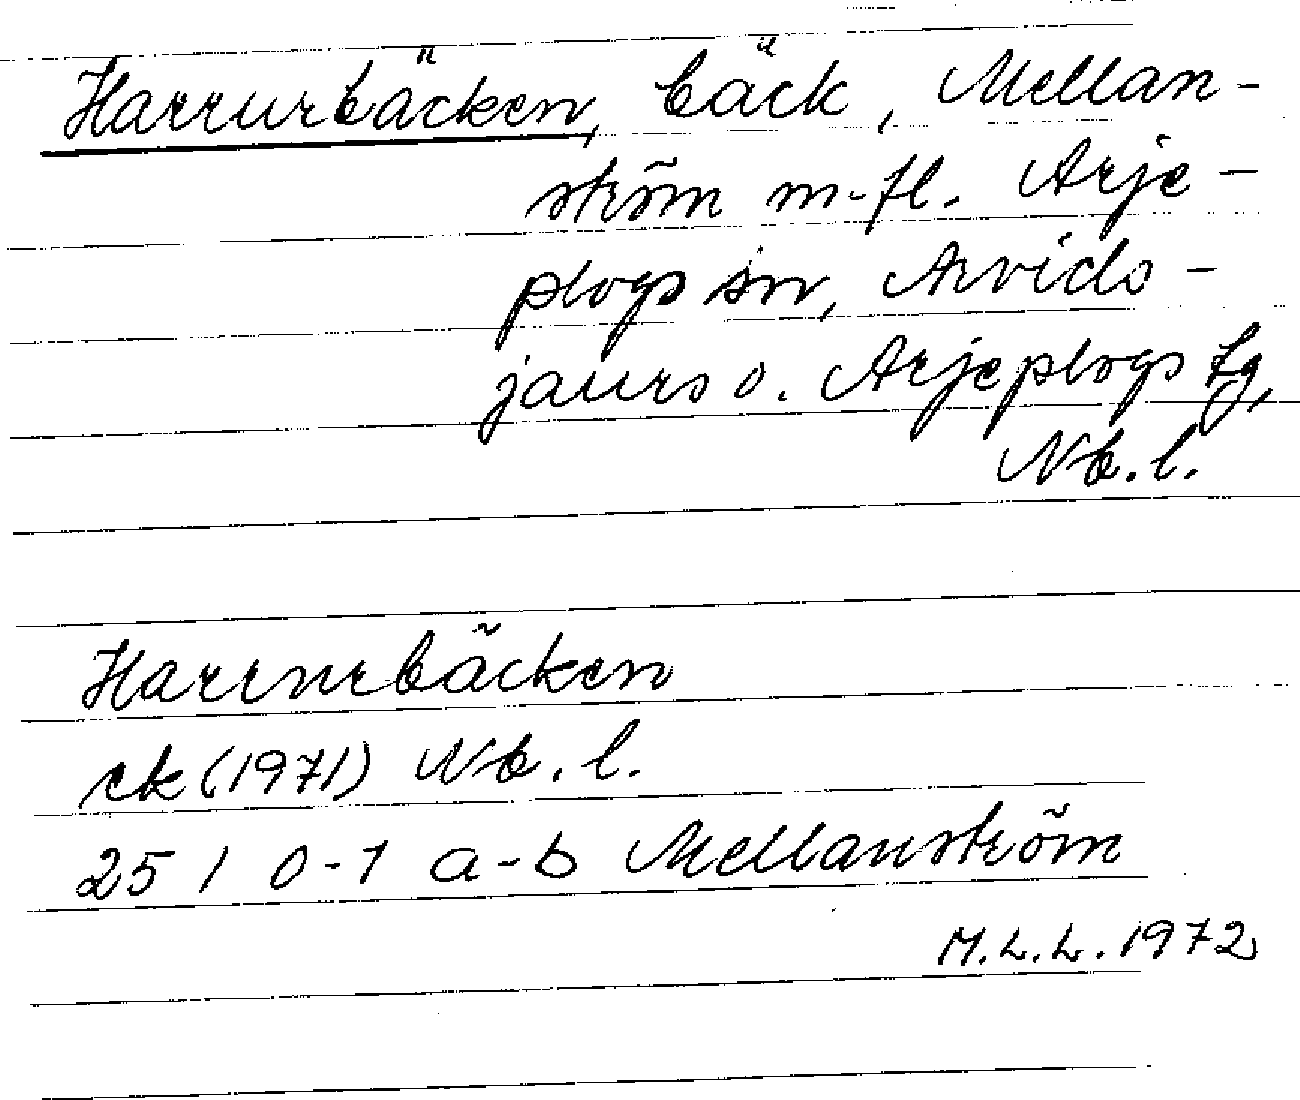 Harrurbäcken, bäck, Mellan-
ström m.fl. Arje-
plogs sn, Arvids-
jaurs o. Arjeplogs tg,
Nb.l.
Harrurbäcken
ek (1971) Nb.l.
25 I 0-1 a-b Mellanström
M.L.L. 1972